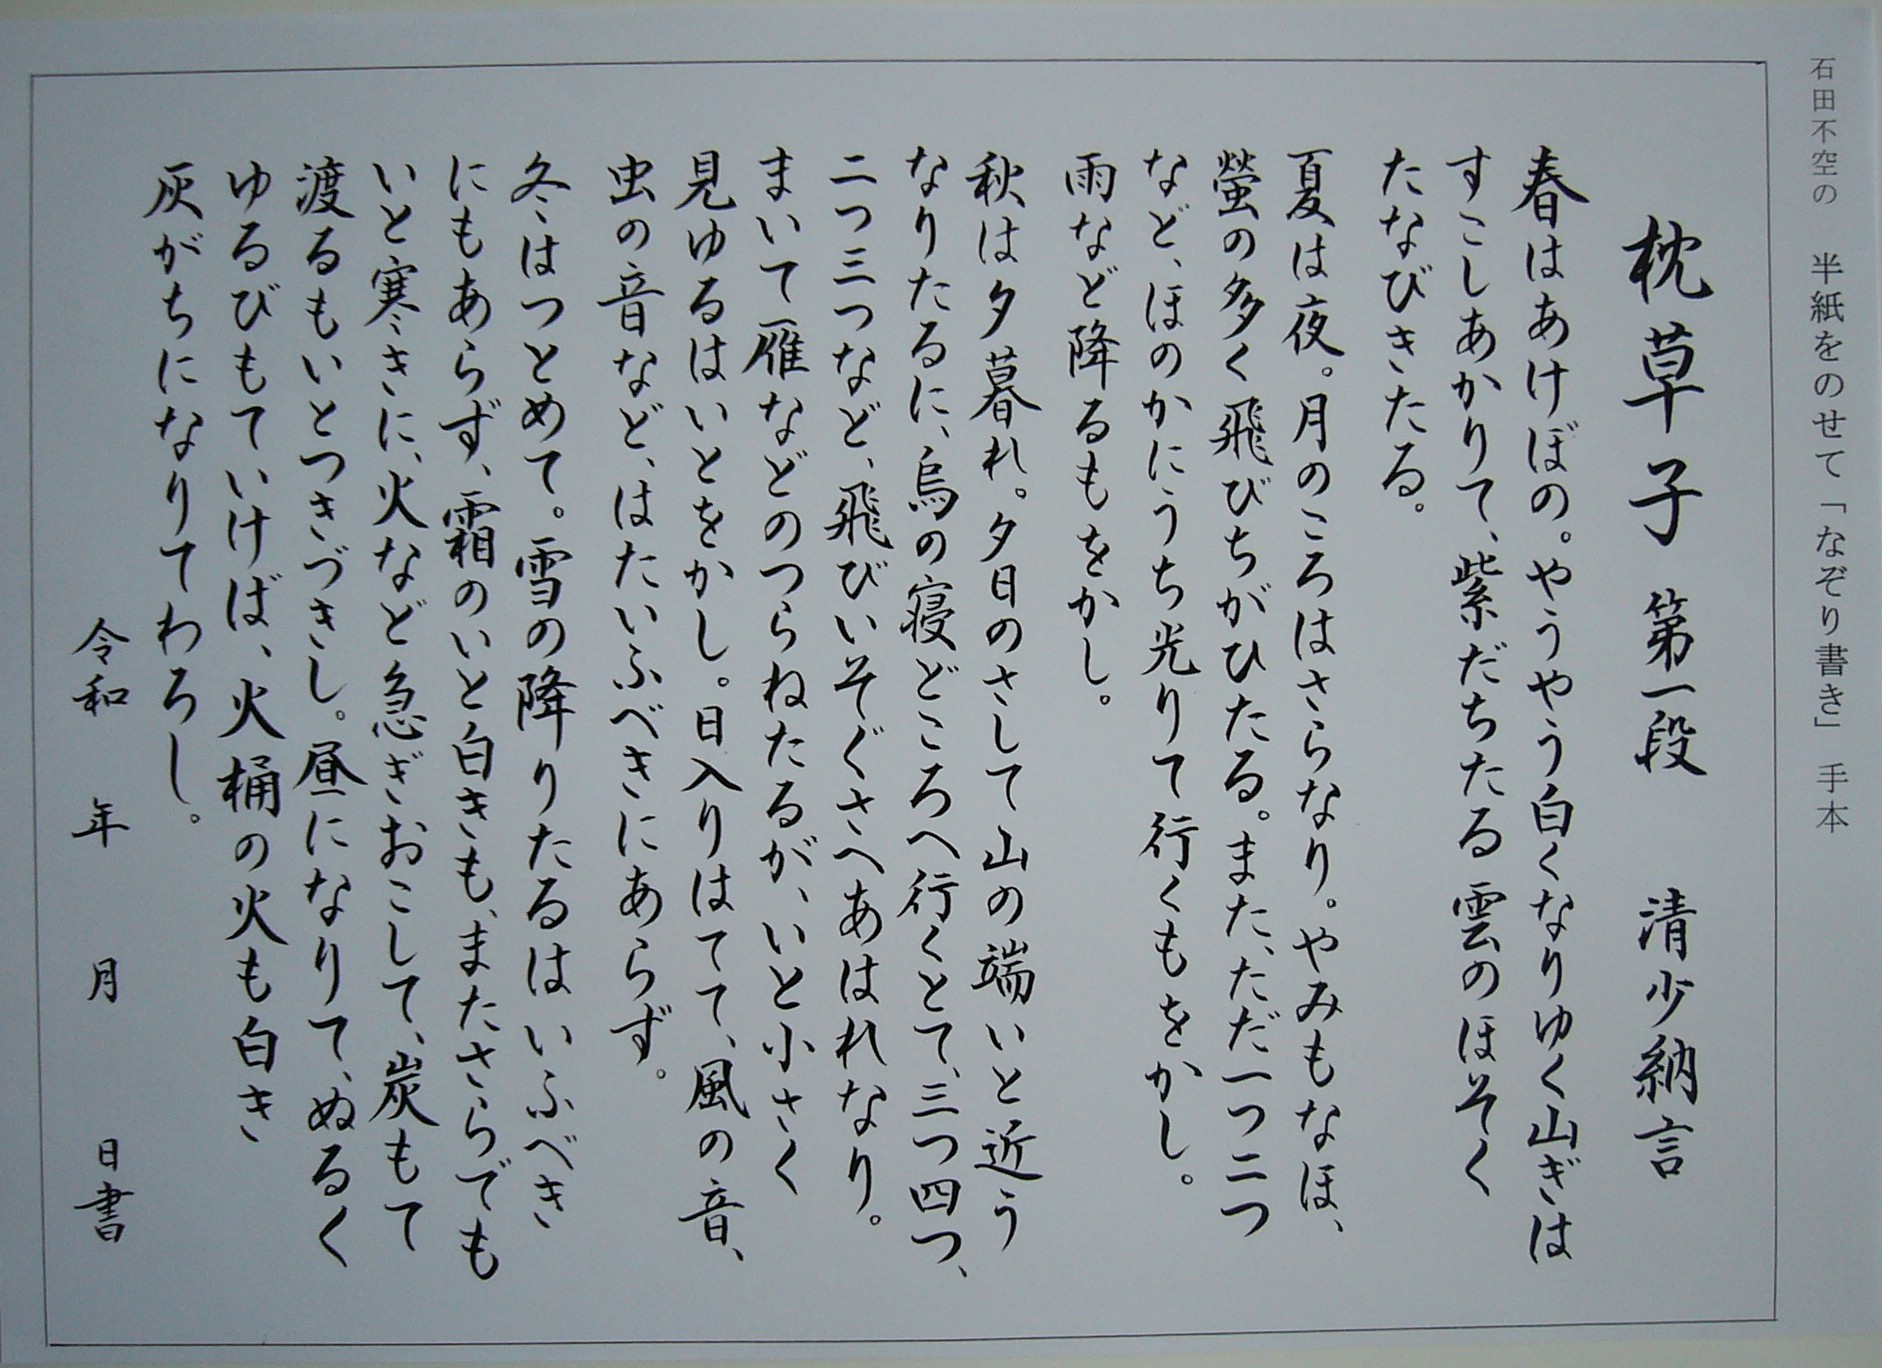 石田不空の 半紙をのせて「なぞり書き」 手本
枕草子 第一段 清少納言
春はあけぼの。やうやう白くなりゆく山ぎは
すこしあかりて、紫だちたる雲のほそく
たなびきたる。
夏は夜。月のころはさらなり。やみもなほ、
螢の多く飛びちがひたる。また、ただ一つ二つ
など、ほのかにうち光りて行くもをかし。
雨など降るもをかし。
秋は夕暮れ。夕日のさして山の端いと近う
なりたるに、烏の寝どころへ行くとて、三つ四つ、
二つ三つなど、飛びいそぐさへあはれなり。
まいて雁などのつらねたるが、いと小さく
見ゆるはいとをかし。日入りはてて、風の音、
虫の音など、はたいふべきにあらず。
冬はつとめて。雪の降りたるはいふべき
にもあらず、霜のいと白きも、またさらでも
いと寒きに、火など急ぎおこして、炭もて
渡るもいとつきづきし。昼になりて、ぬるく
ゆるびもていけば、火桶の火も白き
灰がちになりてわろし。
令和 年 月 日書